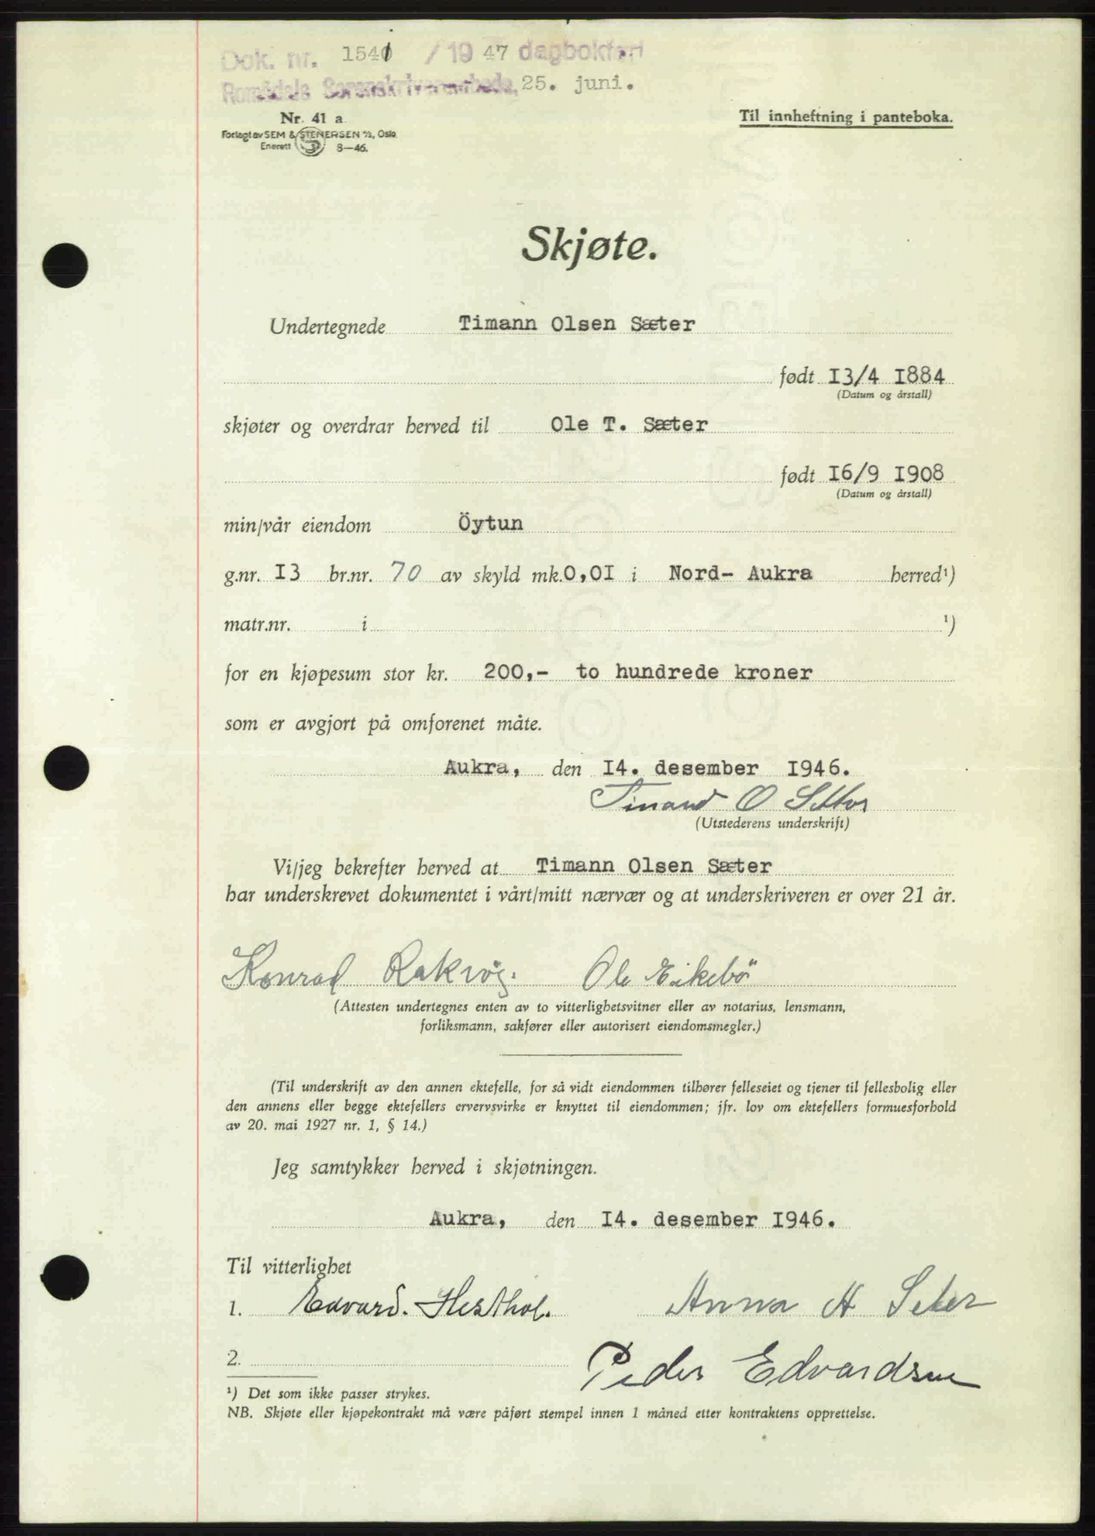 Dok. nr. 1541 / 19 47 dagbokført
Romsdals Sorenskriverembede, 25. juni.
Nr. 41 a
Forlagt av SEM & STENERSEN A/S, Oslo
Enerett 8—46.
Til innheftning i panteboka.
Skjøte.
Undertegnede Timann Olsen Sæter
født I3/4 I884
(Datum og årstall)
skjøter og overdrar herved til Ole T. Sæter
født I6/9 I908
(Datum og årstall)
min/vår eiendom Öytun
g.nr. I3 br.nr. 70 av skyld mk. 0,0I i Nord- Aukra herred¹)
matr.nr. i ¹)
for en kjøpesum stor kr. 200,- to hundrede kroner
som er avgjort på omforenet måte.
Aukra, den I4. desember I946.
(Utstederens underskrift)
Vi/jeg bekrefter herved at Timann Olsen Sæter
har underskrevet dokumentet i vårt/mitt nærvær og at underskriveren er over 21 år.
Konrad Rakvåg. Ole Eikebö
(Attesten undertegnes enten av to vitterlighetsvitner eller av notarius, lensmann,
forliksmann, sakfører eller autorisert eiendomsmegler.)
(Til underskrift av den annen ektefelle, for så vidt eiendommen tilhører felleseiet og tjener til fellesbolig eller
den annens eller begge ektefellers ervervsvirke er knyttet til eiendommen; jfr. lov om ektefellers formuesforhold
av 20. mai 1927 nr. 1, § 14.)
Jeg samtykker herved i skjøtningen.
Aukra, den I4. desember I946.
Til vitterlighet
1. Edvard. Hesthol. Anna H Seter
2. Peder Edvardsen
¹) Det som ikke passer strykes.
NB. Skjøte eller kjøpekontrakt må være påført stempel innen 1 måned etter kontraktens opprettelse.